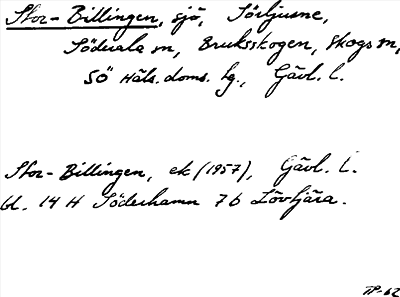 Stor-Billingen, sjö, Sörljusne,
Söderala sn, Bruksskogen, Skogs sn,
SÖ Häls. doms. tg., Gävl. l.
Stor-Billingen, ek (1957), Gävl. l.
bl. 14 H Söderhamn 7 b Lövtjära.
TP-62